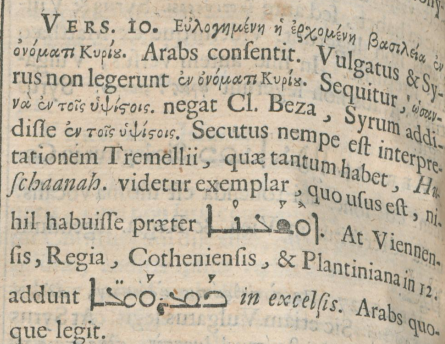 VERS. 10. Εὐλογημένη ἡ ἐρχομένη βασιλεία ἐν
ὀνόματι Κυρίȣ. Arabs conſentit. Vulgatus & Sy-
rus non legerunt ἐν ὀνόματι Κυρίȣ. Sequitur, ὡσαν-
νὰ ἐν τοῖς ὑψίϛοις. negat Cl. Beza, Syrum addi-
diſſe ἐν τοῖς ὑψίϛοις. Secutus nempe eſt interpre-
tationem Tremellii, quæ tantum habet, Hu-
ſchaanah. videtur exemplar, quo uſus eſt, ni-
hil habuiſſe præter ܐܘܫܥܢܐ. At Viennen-
ſis, Regia, Cothenienſis, & Plantiniana in 12.
addunt ܒܡܪ̈ܘܡܐ in excelſis. Arabs quo-
que legit.